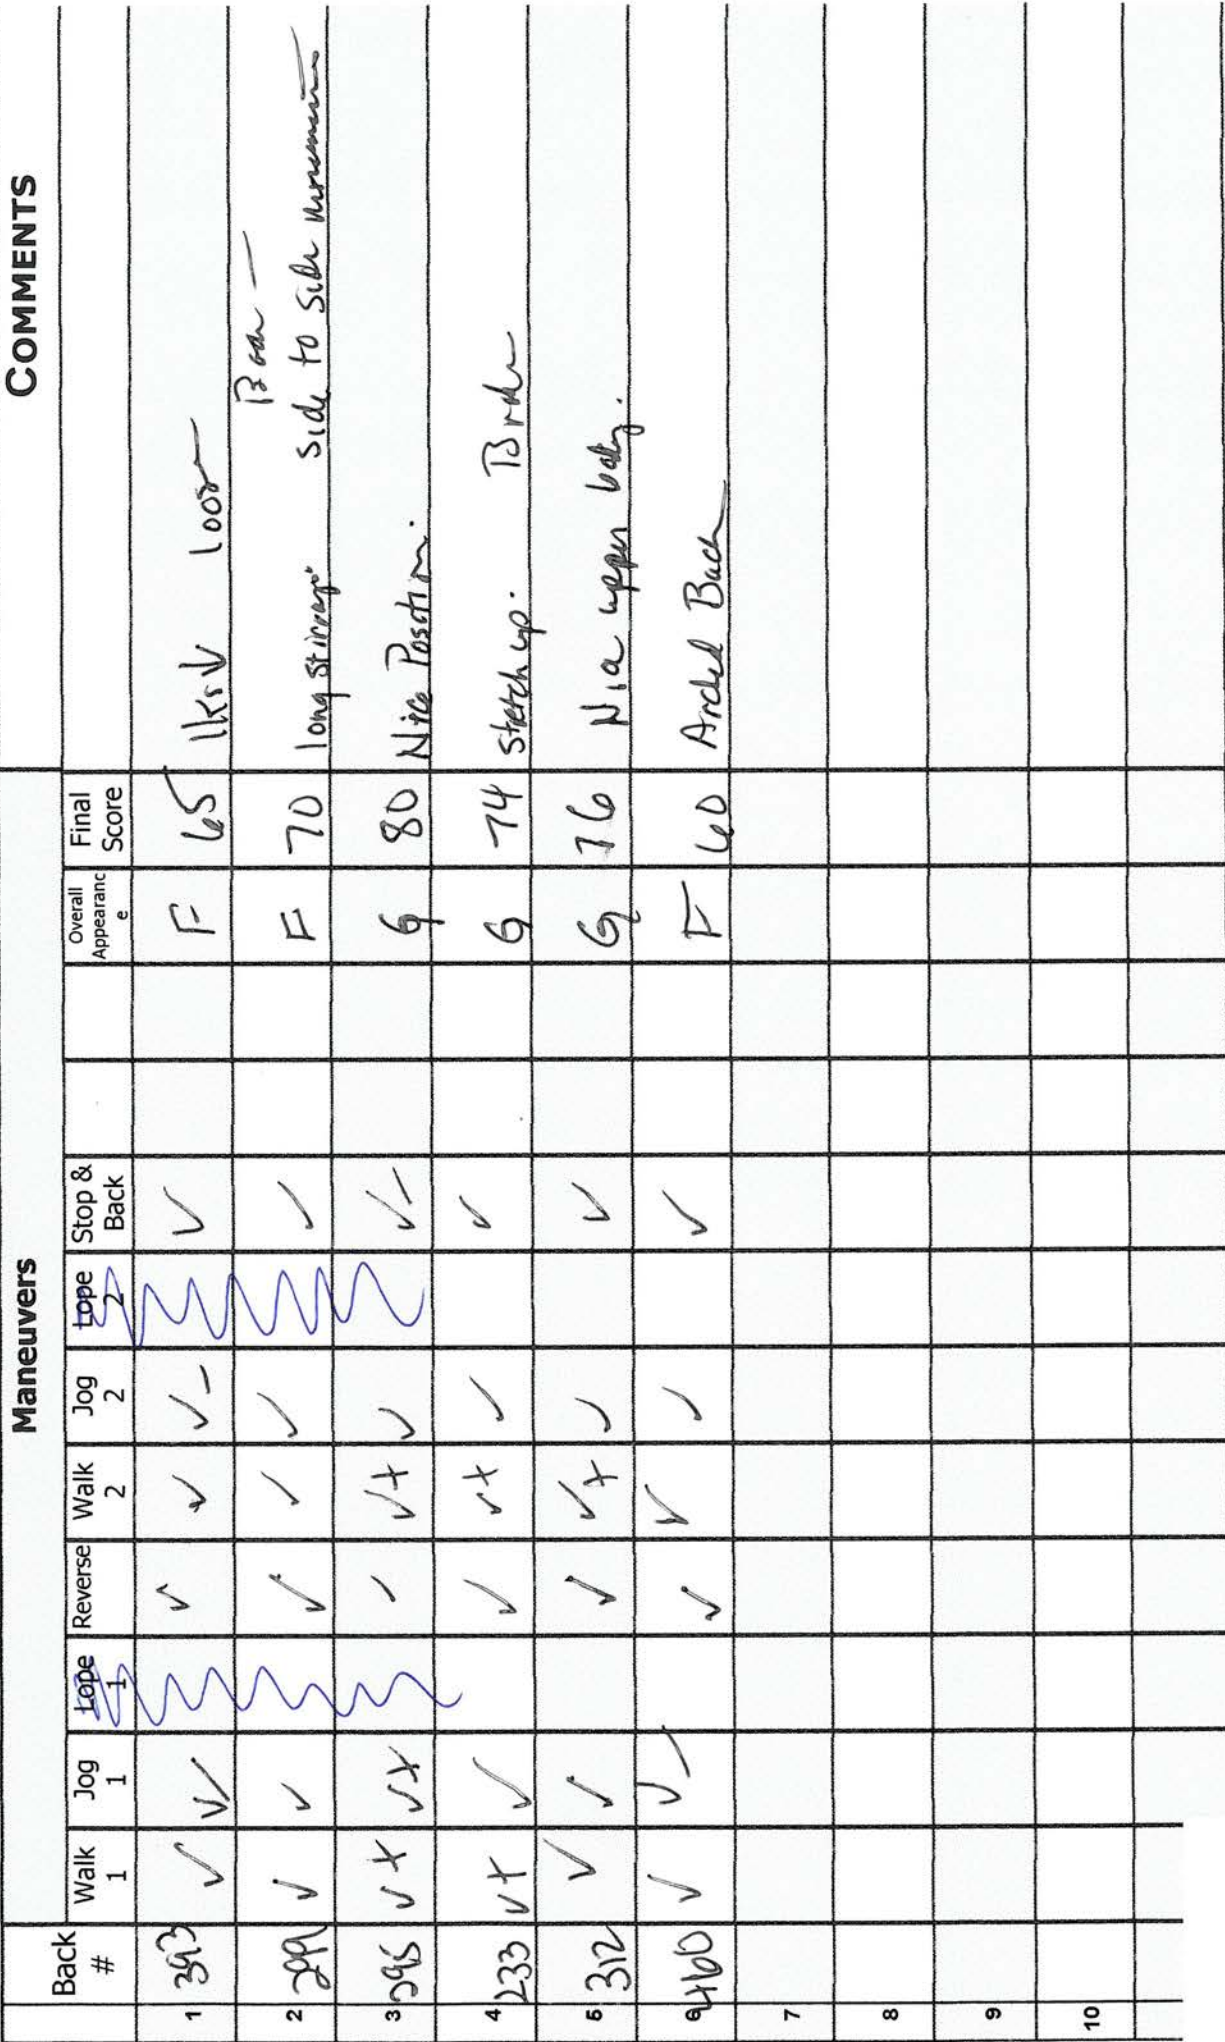 Maneuvers COMMENTS
Back # Walk 1 Jog 1 Lope 1 Reverse Walk 2 Jog 2 Lope 2 Stop & Back Overall Appearanc e Final Score
1 393 ✓ ✓ ✓ ✓ ✓- ✓ F 65
2 299 ✓ ✓ ✓ ✓ ✓ ✓ F 70 long stirrups side to side movement
3 295 ✓+ ✓+ ✓ ✓+ ✓ ✓- G 80 Nice Position.
4 233 ✓+ ✓ ✓ ✓+ ✓ ✓ G 74 Stretch up. Broke
5 312 ✓ ✓ ✓ ✓+ ✓ ✓ G 76 Nice upper body.
6 460 ✓ ✓- ✓ ✓ ✓ ✓ F 60 Arched Back
7
8
9
10